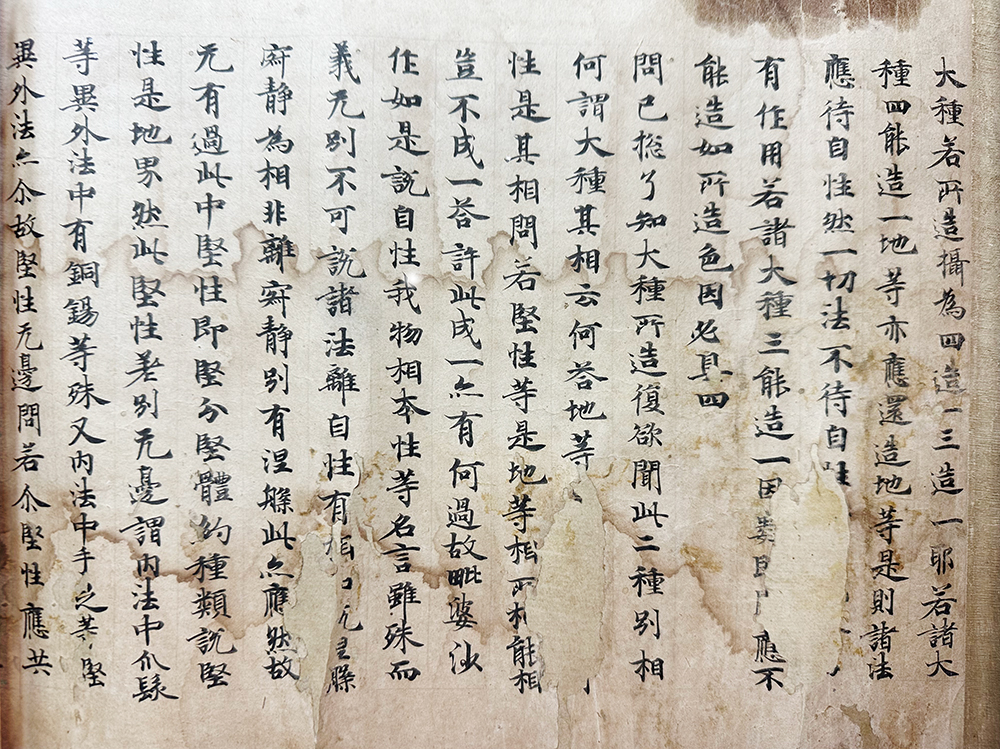 大種若所造攝為四造一三造一耶若諸大
種四能造一地等亦應還造地等是則諸法
應待自性然一切法不待自性
有作用若諸大種三能造一因應不
能造如所造色因必具四
問已捴了知大種所造復欲聞此二種別相
何謂大種其相云何荅地等
性是其相問若堅性等是地等相所相能相
豈不成一荅許此成一亦有何過故毗婆沙
作如是說自性我物相本性等名言雖殊而
義无別不可說諸法離自性有相
寂靜為相非離寂靜別有涅槃此亦應然故
无有過此中堅性即堅分堅體約種類說堅
性是地界然此堅性差別无邊謂內法中爪髮
等異外法中有銅錫等殊又內法中手足等堅
異外法亦尒故堅性无邊問若尒堅性應共